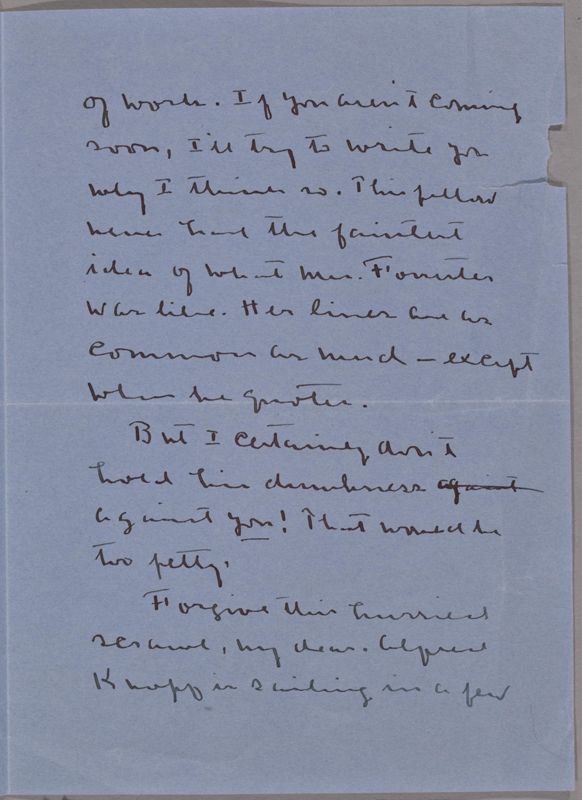 of work. If you aren't coming
soon, I'll try to write you
why I think so. This fellow
never had the faintest
idea of what Mrs. Forrester
was like. Her lines are as
common as mud — except
when he quotes.
But I certainly don't
hold his dumbness against
against you! That would be
too petty.
Forgive this hurried
scrawl, my dear. Alfred
Knopf is sailing in a few